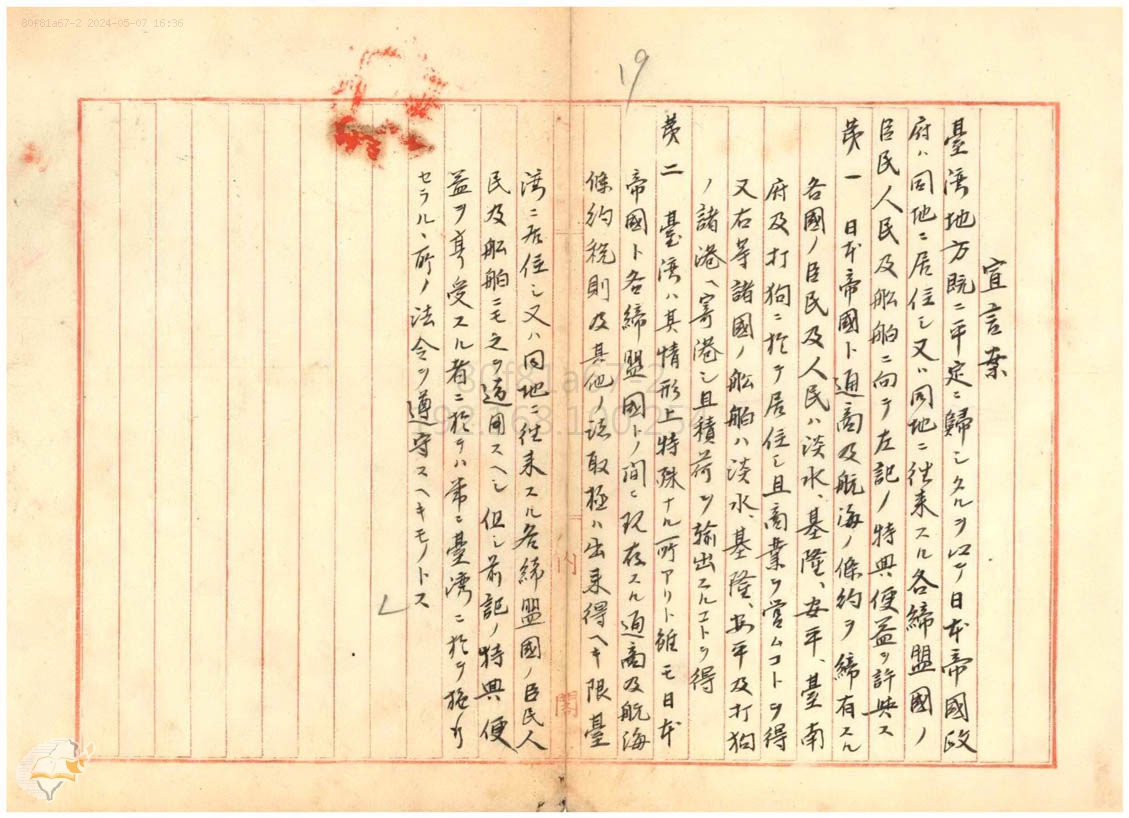 80f81a67-2 2024-05-07 16:36
19
宣言案
臺湾地方既ニ平定ニ歸シタルヲ以テ日本帝國政
府ハ同地ニ居住シ又ハ同地ニ往来スル各締盟國ノ
臣民人民及船舶ニ向テ左記ノ特典便益ヲ許與ス
第一 日本帝國ト通商及航海ノ條約ヲ締有スル
各國ノ臣民及人民ハ淡水、基隆、安平、臺南
府及打狗ニ於テ居住シ且商業ヲ営ムコトヲ得
又右等諸國ノ船舶ハ淡水、基隆、安平及打狗
ノ諸港ヘ寄港シ且積荷ヲ輸出スルコトヲ得
第二 臺湾ハ其情形上特殊ナル所アリト雖モ日本
帝國ト各締盟國トノ間ニ現存スル通商及航海
條約税則及其他ノ諸取極ハ出来得ヘキ限臺
湾ニ居住シ又ハ同地ニ往来スル各締盟國ノ臣民人
民及船舶ニモ之ヲ適用スヘシ但シ前記ノ特典便
益ヲ享受スル者ニ於テハ常ニ臺湾ニ於テ施行
セラルヽ所ノ法令ヲ遵守スヘキモノトス
内閣
80f81a67-2
192.168.100.254